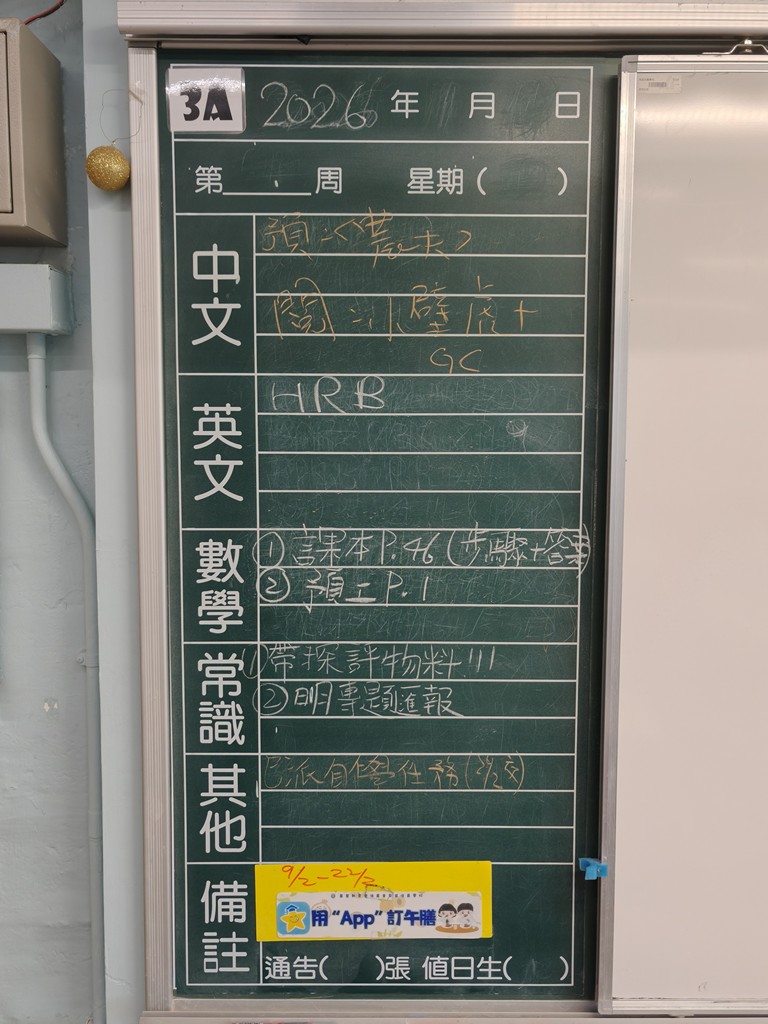 3A 2026年 月 日
第 周 星期( )
中文
預:<農夫>
閱:冰壁虎+
GC
英文
HRB
數學
①課本P.46(步驟+答案)
②預工P.1
常識
①帶探評物料!!!
②明專題匯報
其他
已派自學任務
備註
9/2-22/2
用"App"訂午膳
通告( )張 值日生( )